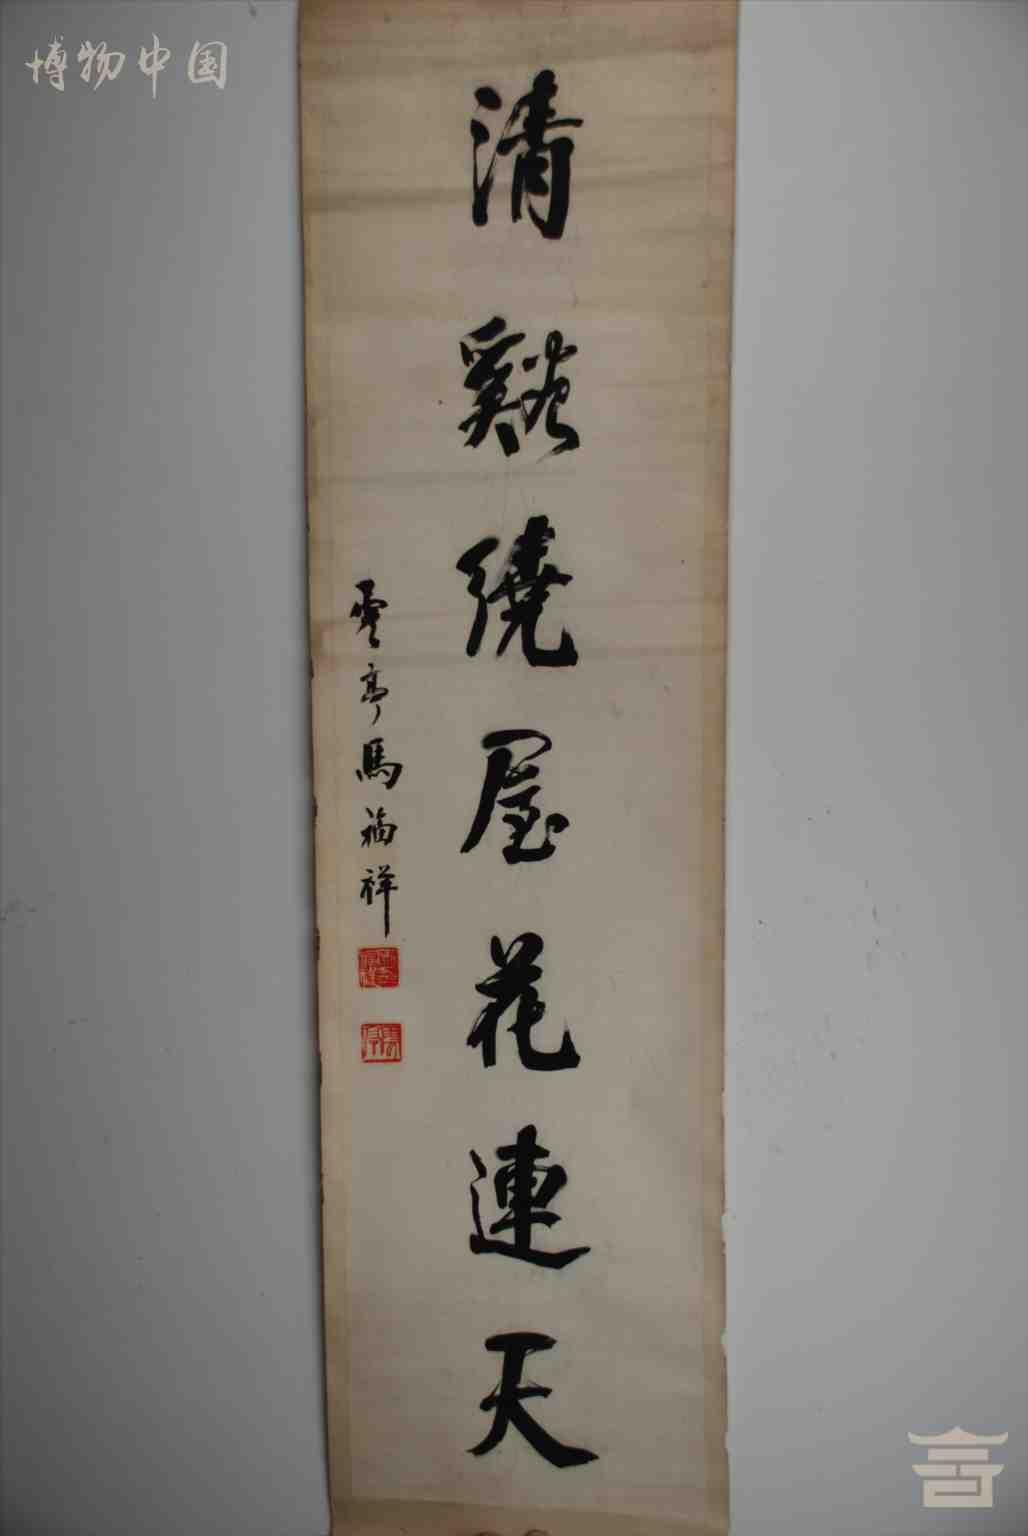 博物中国
清谿繞屋花連天
雲亭馬福祥